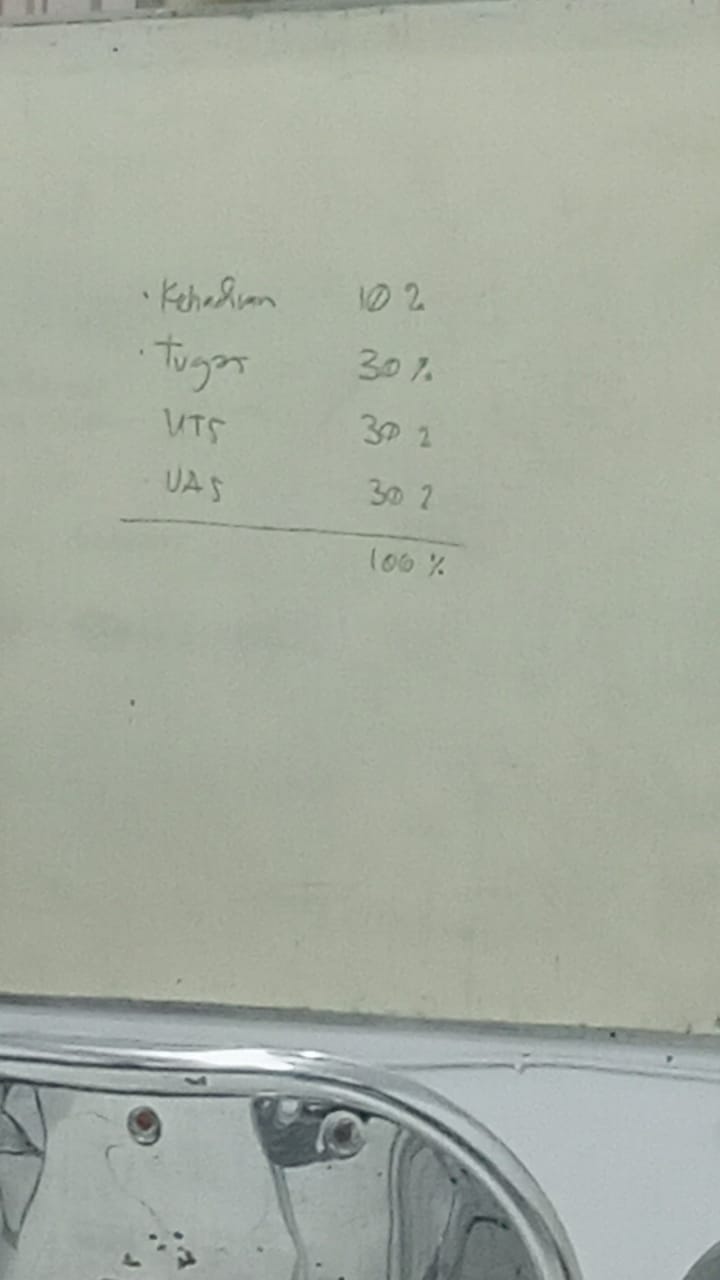 · Kehadiran 10 %
· Tugas 30 %
UTS 30 %
UAS 30 %
100 %